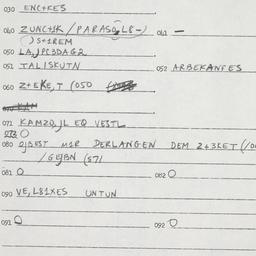 030 ENC+KES
040 ZUNC+1K / PARASOL8-) 041 —
)S+1REM
050 LA,)PC3DAG2
051 TALISKUTN 052 ARBEKANFES
060 Z+EKE,T (050
071 KAMZO,JL EQ VESTL
072 O
080 DERLANGEN DEM Z+3KET
081 O 082 O
090 VE,L81XES UNTUN
091 O 092 O